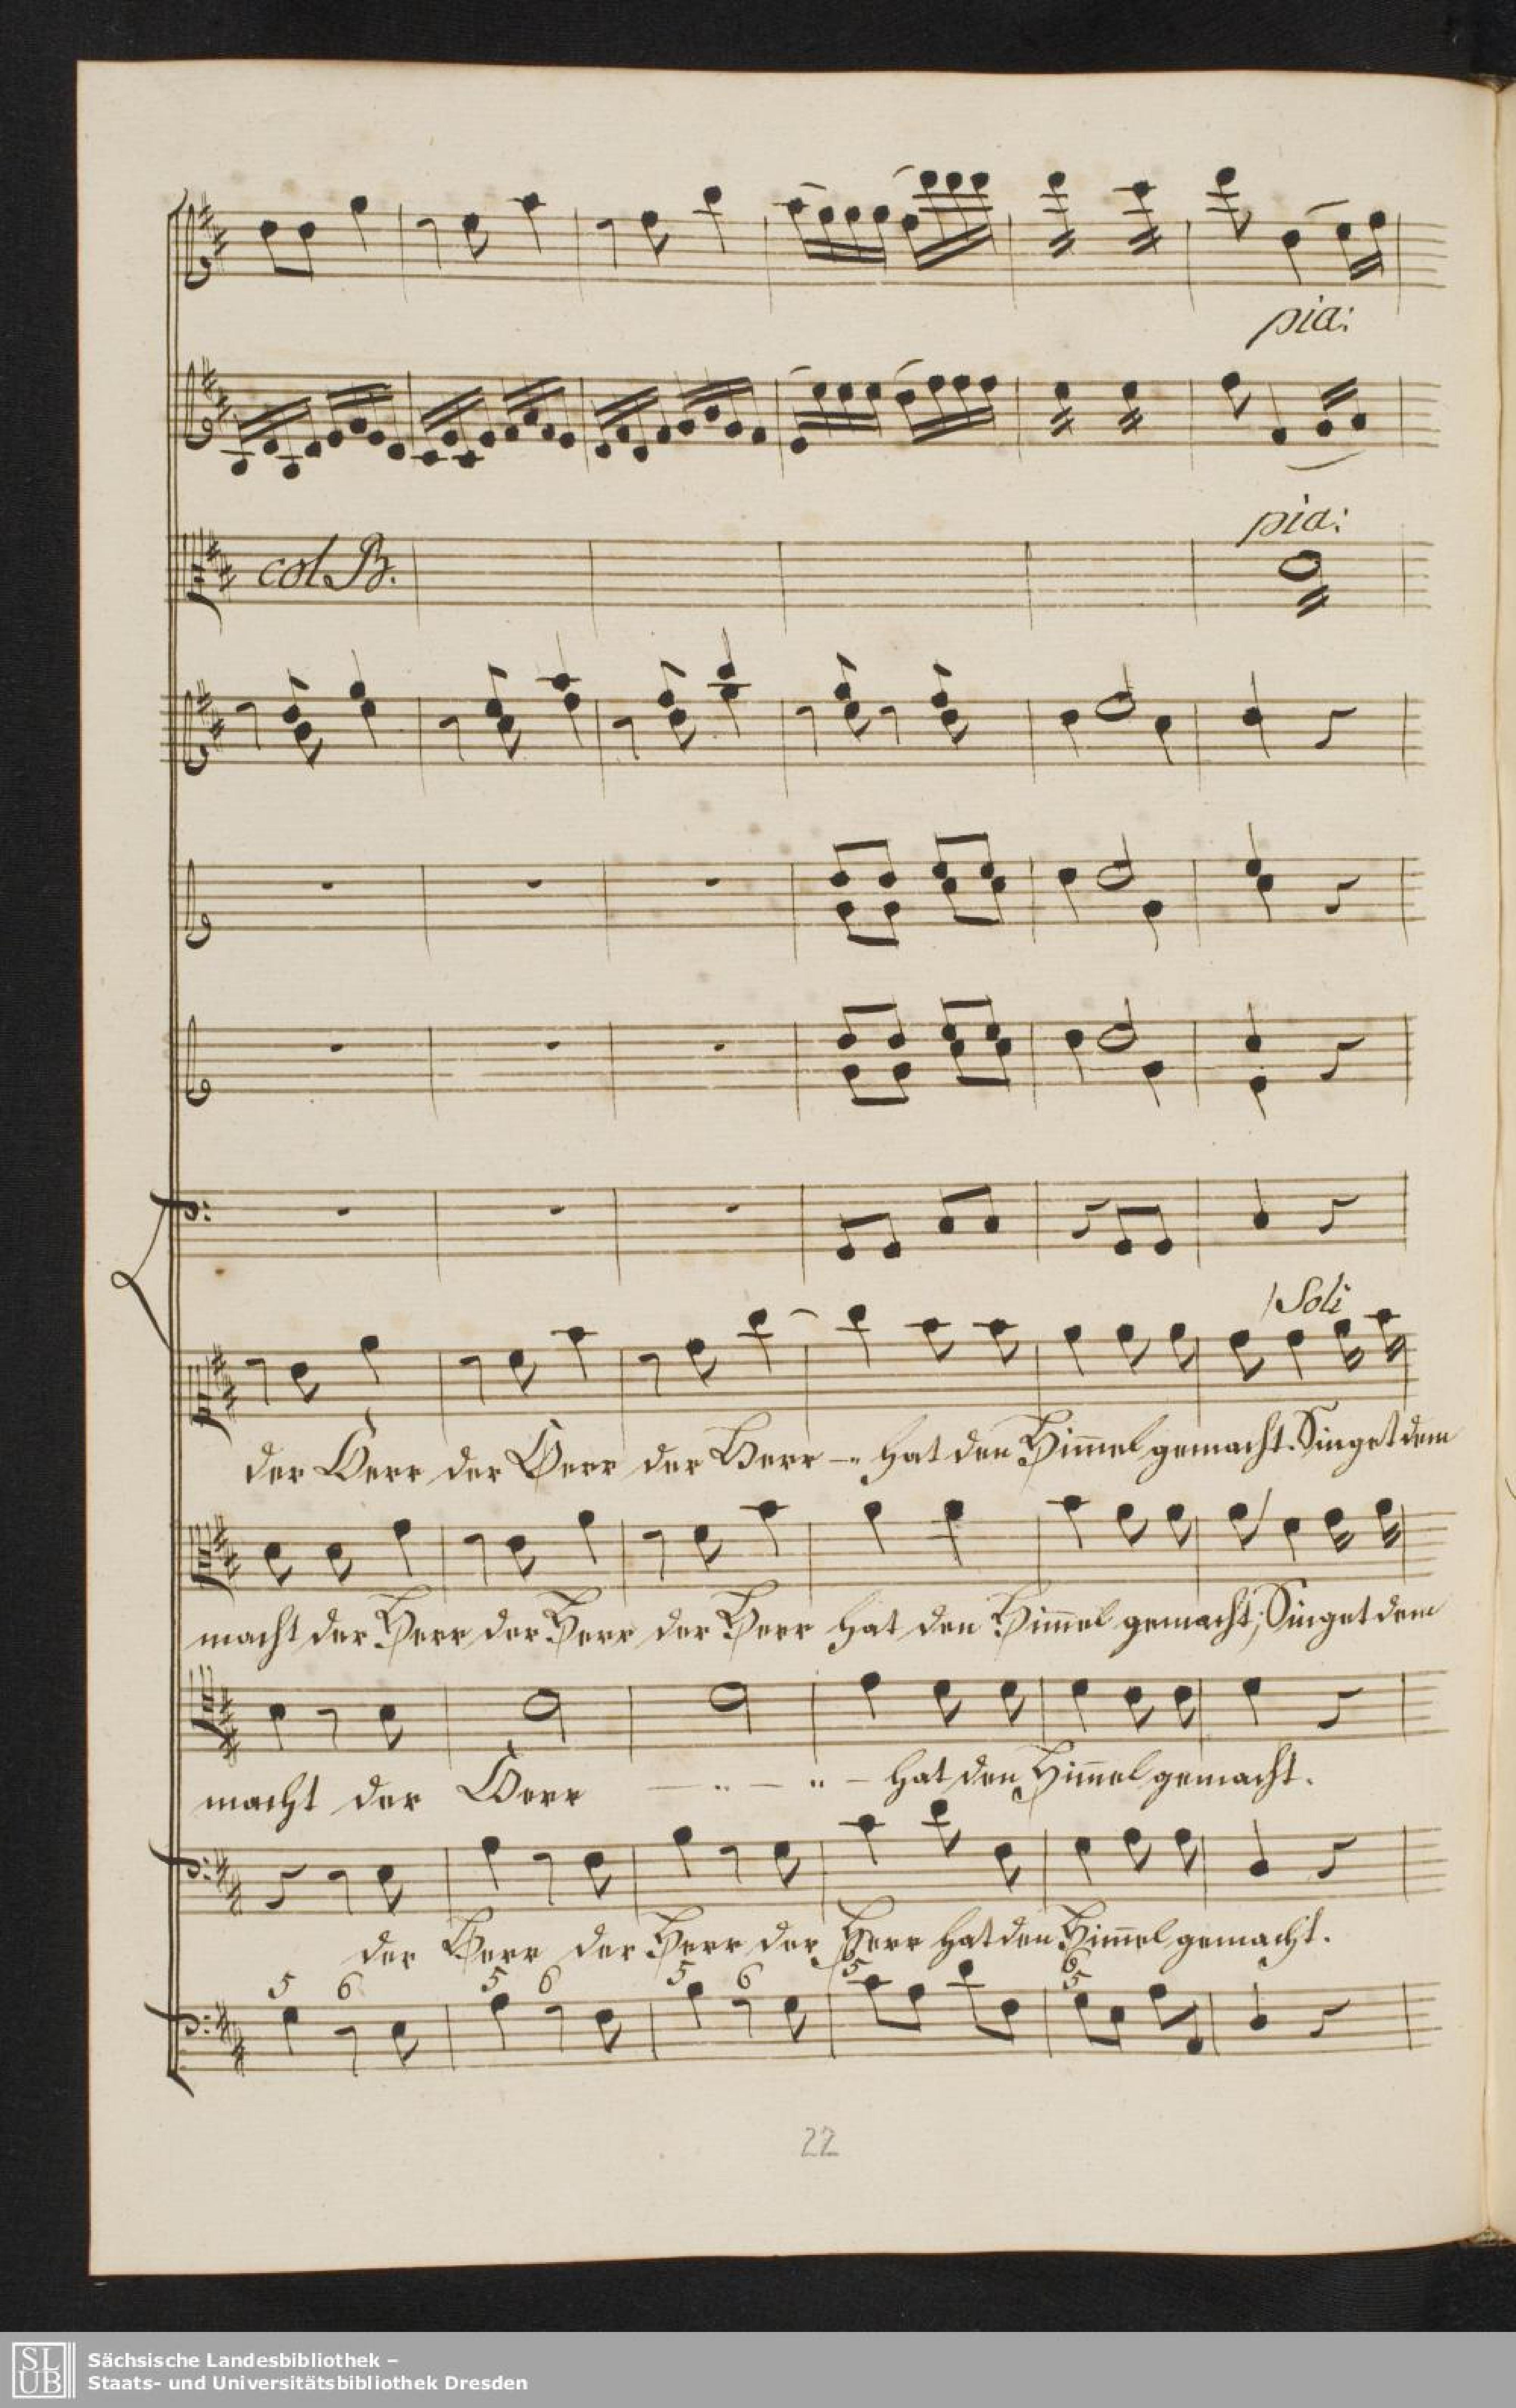 pia:
pia:
col. B.
Soli
der Herr der Herr der Herr -.. hat den Him̄el gemacht. Singet dem
macht der Herr der Herr der Herr hat den Him̄el gemacht; Singet dem
macht der Herr - .. - .. - hat den Him̄el gemacht.
der Herr der Herr der Herr hat den Him̄el gemacht.
5 6 5 6 5 6 6 5 6 5
22
SLUB Sächsische Landesbibliothek –
Staats- und Universitätsbibliothek Dresden